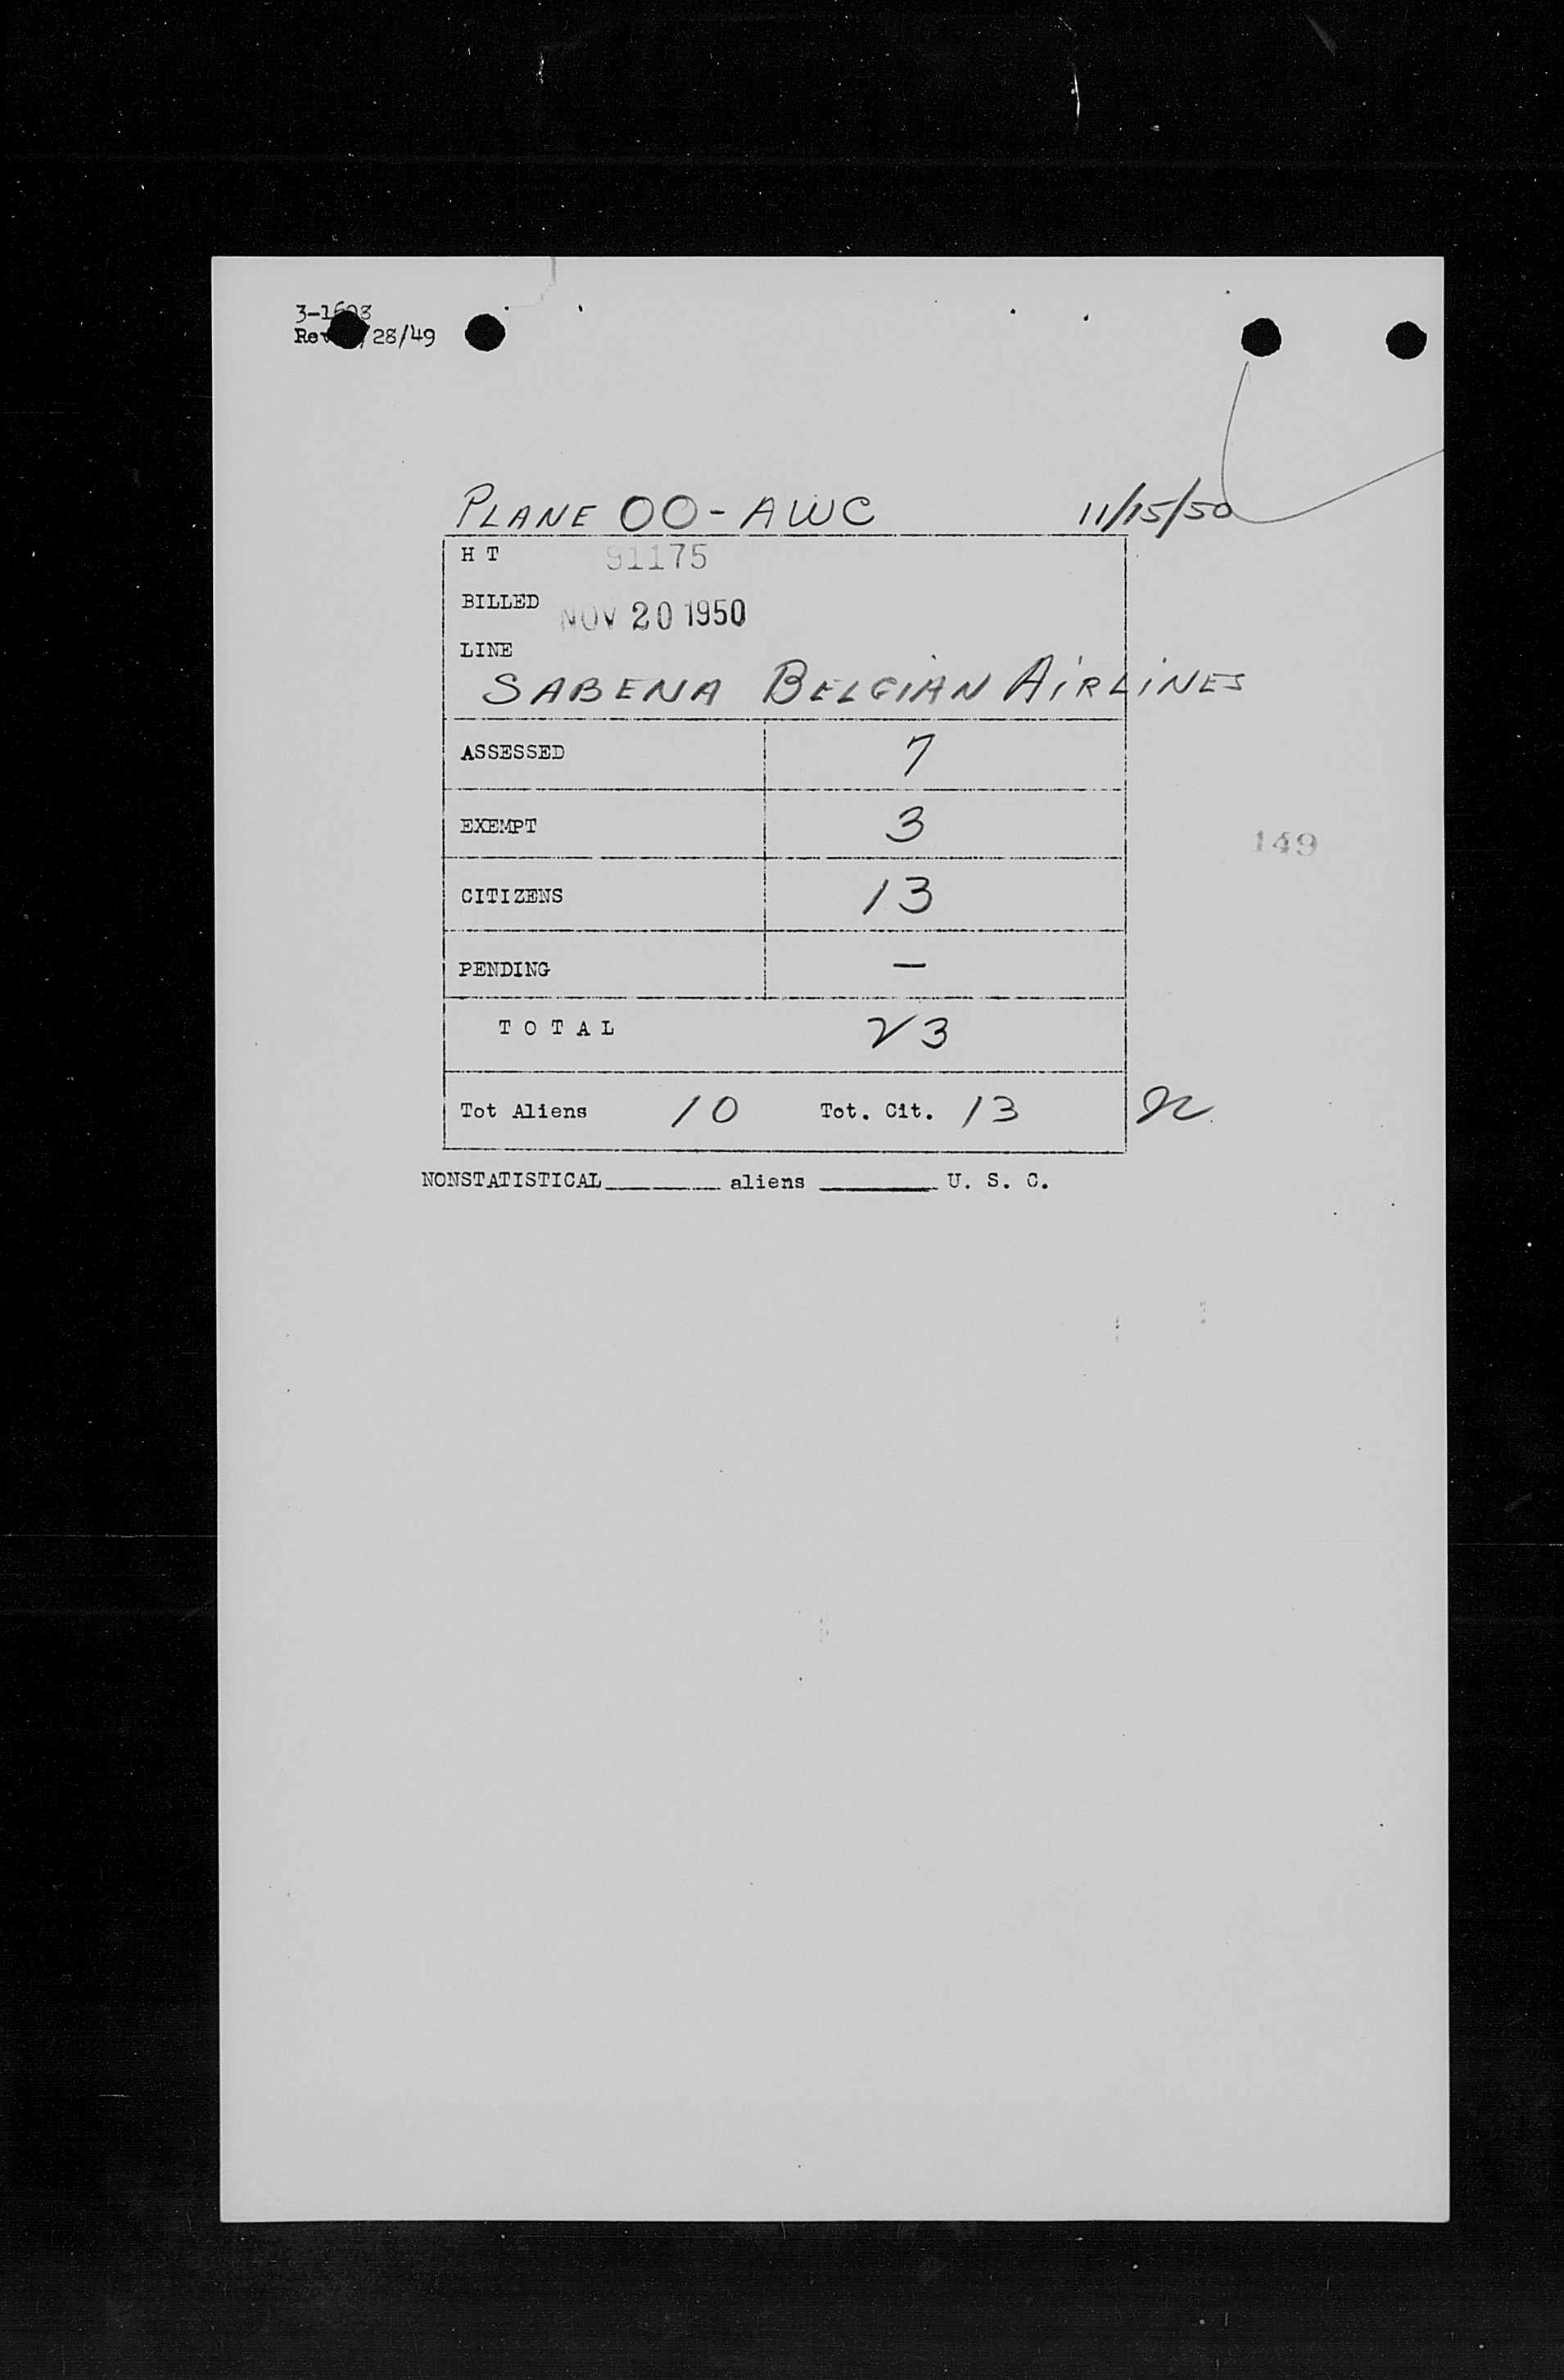 3-1608
Rev /28/49
PLANE OO-AWC 11/15/50
H T 91175
BILLED NOV 20 1950
LINE
SABENA BELGIAN AIRLINES
ASSESSED 7
EXEMPT 3
149
CITIZENS 13
PENDING —
T O T A L 23
Tot Aliens 10 Tot. Cit. 13
NONSTATISTICAL________ aliens ________ U. S. C.